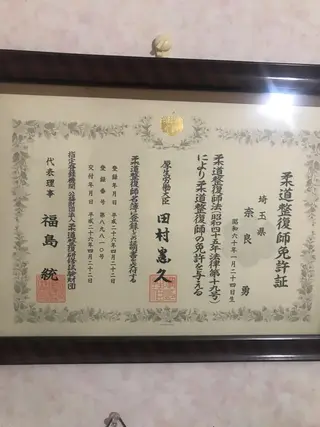 柔道整復師免許証
埼玉県
奈良 勇
昭和六十年一月二十四日生
柔道整復師法(昭和四十五年法律第十九号)
により柔道整復師の免許を与える
厚生労働大臣 田村憲久
柔道整復師名簿に登録した証明書を交付する
登録年月日 平成二十六年四月二十二日
交付年月日 平成二十六年四月二十二日
指定登録機関 公益財団法人柔道整復研修試験財団
代表理事 福島 統